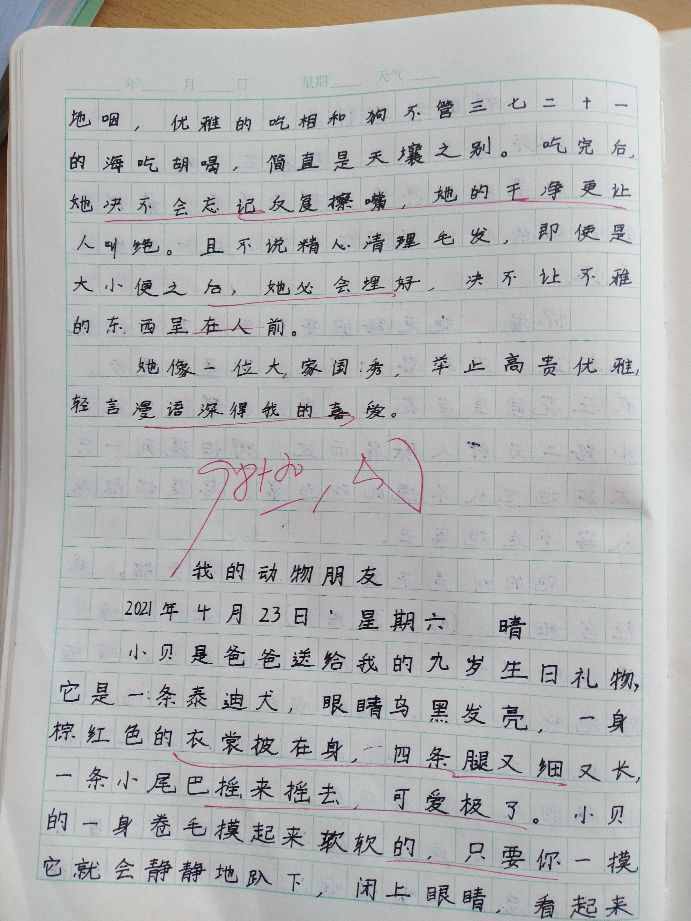 年 月 日 星期 天气
地咽，优雅的吃相和狗不管三七二十一
的海吃胡喝，简直是天壤之别。吃完后，
她决不会忘记反复擦嘴，她的干净更让
人叫绝。且不说精心清理毛发，即使是
大小便之后，她必会埋好，决不让不雅
的东西呈在人前。
她像一位大家闺秀，举止高贵优雅，
轻言漫语深得我的喜爱。
我的动物朋友
2021年4月23日 星期六 晴
小贝是爸爸送给我的九岁生日礼物，
它是一条泰迪犬，眼睛乌黑发亮，一身
棕红色的衣裳披在身，四条腿又细又长，
一条小尾巴摇来摇去，可爱极了。小贝
的一身卷毛摸起来软软的，只要你一摸
它就会静静地趴下，闭上眼睛，看起来